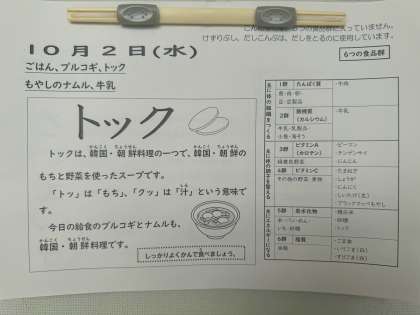 ６つの食品群に入っていません。
けずりぶし、だしこんぶは、だしをとるのに使用しています。
１０月２日(水)
ごはん、プルコギ、トック
もやしのナムル、牛乳
６つの食品群
トック
トックは、韓国・朝鮮料理の一つで、韓国・朝鮮の
かんこく ちょうせん かんこく ちょうせん
もちと野菜を使ったスープです。
「トッ」は「もち」、「クッ」は「汁」という意味で
す。
今日の給食のプルコギとナムルも、
かんこく ちょうせん
韓国・朝鮮料理です。
しっかりよくかんで食べましょう。
１群 たんぱく質
・牛肉
２群 無機質
(カルシウム)
・牛乳
牛乳・乳製品
３群 ビタミンA
(カロテン)
・ピーマン
・チンゲンサイ
・にんじん
緑黄色野菜
４群 ビタミンC
・たまねぎ
・しょうが
・にんにく
・ブラックマッペもやし
５群 炭水化物
・精白米
・砂糖
・トック
６群 脂質
・ごま油